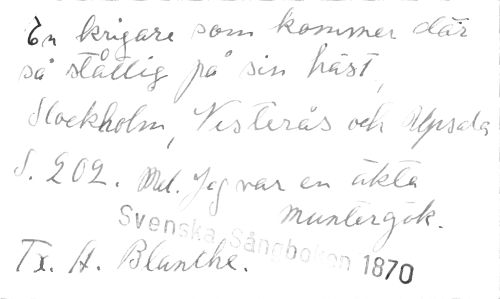 En krigare som kommer där
så ståtlig på sin häst,
Stockholm, Vesterås och Upsala
S. 202. Mel. Jag var en äkta
muntergök.
Svenska Sångboken 1870
Tx. A. Blanche.